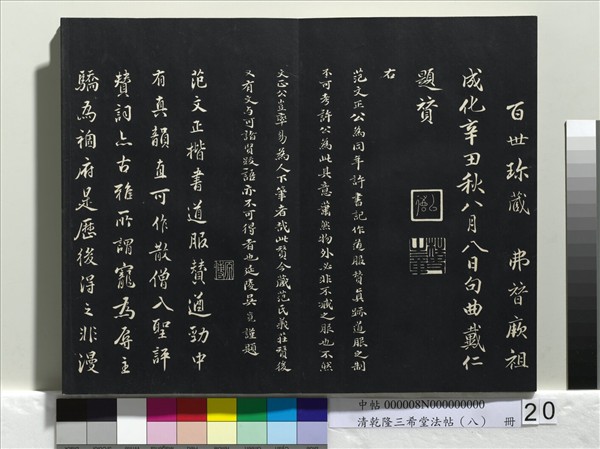 百世珍藏 弗替厥祖
成化辛丑秋八月八日句曲戴仁
題賛
右
范文正公為同年許書記作道服賛真跡道服之制
不可考許公為此其意蕭然物外必非不之服也不然
文正公豈率易為人下筆者哉此賛今藏范氏義莊賛後
又有文与可諸賢跋語亦不可得者也延陵吳寬謹題
范文正楷書道服賛遒勁中
有真韻直可作散僧入聖評
賛詞亦古雅所謂寵為辱主
驕為禍府是歷後得之非漫
中帖 000008N000000000
清乾隆三希堂法帖（八） 冊
20